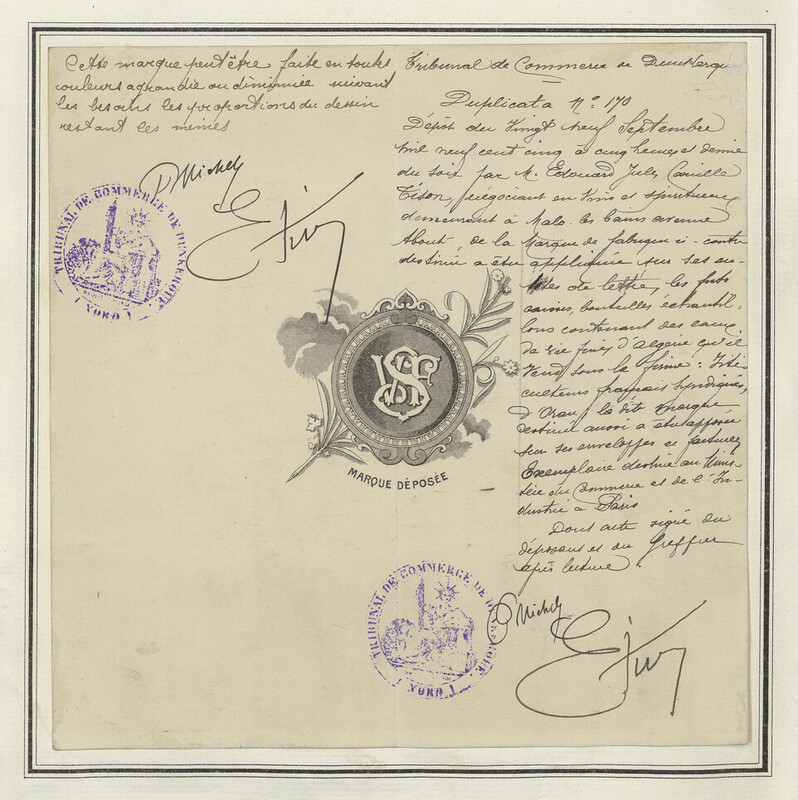 Cette marque peut être faite en toutes
couleurs agrandie ou diminuée suivant
les besoins les proportions du dessin
restant les mêmes
P Michel
E Tison
TRIBUNAL DE COMMERCE DE DUNKERQUE
( NORD )
Tribunal de Commerce de Dunkerque
Duplicata N° 170
Dépôt du Vingt neuf Septembre
mil neuf cent cinq à cinq heures et demie
du soir par M. Edouard Jules Camille
Tison, négociant en Vins et spiritueux
demeurant à Malo-les-bains avenue
About, de la Marque de fabrique ci-contre
destinée à être appliquée sur ses en-
têtes de lettre, les futs
caisses, bouteilles échantil-
lons contenant des eaux
de vie fines d'algérie qu'il
Vend sous la firme : Viti-
culteurs français Syndiqués,
d'Oran, la dite marque
destinée aussi à être apposée
sur ses enveloppes et factures
Exemplaire destiné au Minis-
tère du Commerce et de l'In-
dustrie à Paris
Dont acte signé du
déposant et du Greffier
après lecture.
VSF
MARQUE DÉPOSÉE
TRIBUNAL DE COMMERCE DE DUNKERQUE
( NORD )
P Michel
E Tison